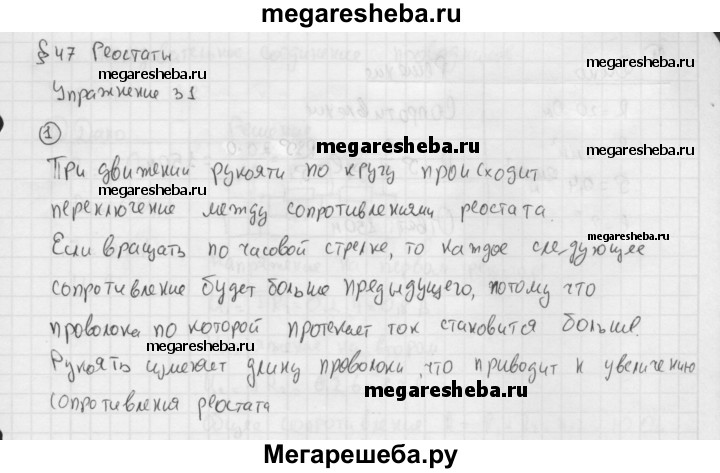 megaresheba.ru
§ 47 Реостаты
megaresheba.ru
Упражнение 31
megaresheba.ru
1
megaresheba.ru
При движении рукояти по кругу происходит
megaresheba.ru
переключение между сопротивлениями реостата.
megaresheba.ru
Если вращать по часовой стрелке, то каждое следующее
сопротивление будет больше предыдущего, потому что
проволока по которой протекает ток становится больше.
megaresheba.ru
megaresheba.ru
Рукоять изменяет длину проволоки, что приводит к увеличению
megaresheba.ru
сопротивления реостата
Мегарешеба.ру